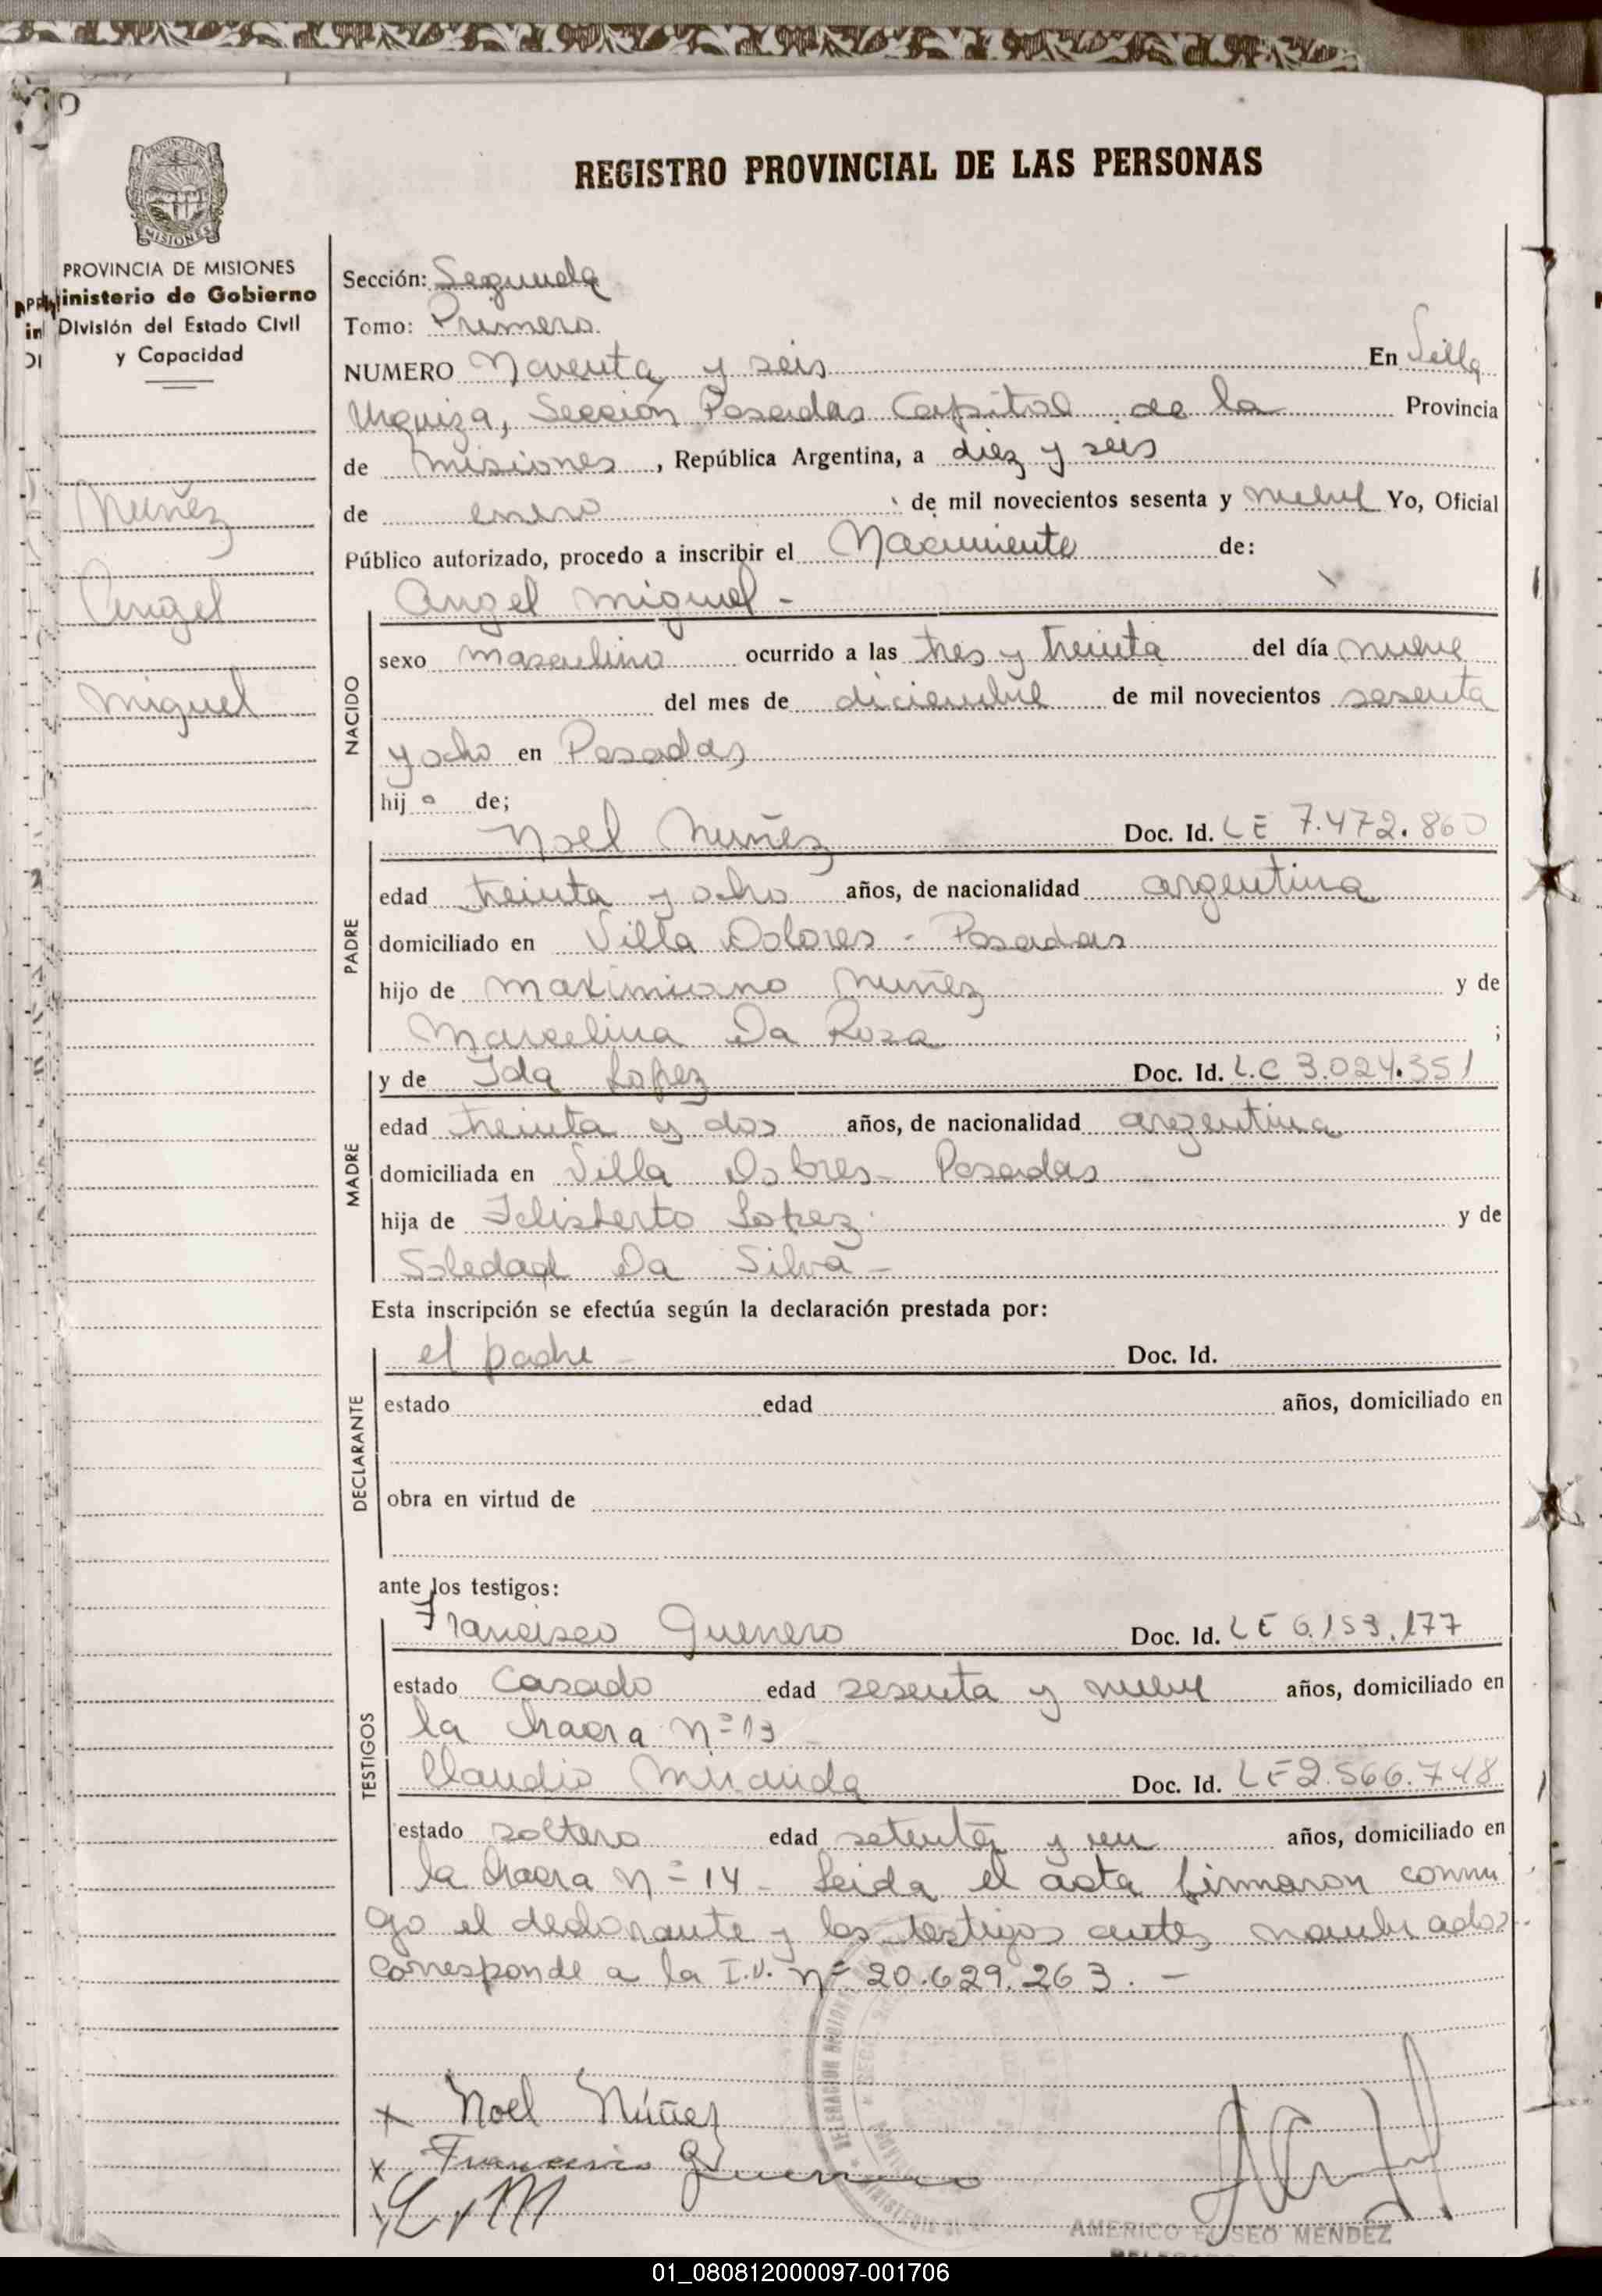 REGISTRO PROVINCIAL DE LAS PERSONAS
PROVINCIA DE MISIONES
Ministerio de Gobierno
División del Estado Civil
y Capacidad
Nuñez
Angel
Miguel
Sección: Segunda
Tomo: Primero.
NUMERO Noventa y seis En Villa
Urquiza, Sección Posadas Capital de la Provincia
de Misiones, República Argentina, a diez y seis
de enero de mil novecientos sesenta y nueve Yo, Oficial
Público autorizado, procedo a inscribir el Nacimiento de:
Angel Miguel -
NACIDO
sexo masculino ocurrido a las tres y treinta del día nueve
del mes de diciembre de mil novecientos sesenta
y ocho en Posadas
hijo de;
PADRE
Noel Nuñez Doc. Id. LE 7.472.860
edad treinta y ocho años, de nacionalidad argentina
domiciliado en Villa Dolores - Posadas
hijo de Maximiano Nuñez y de
Marcelina Da Roza ;
MADRE
y de Ida Lopez Doc. Id. L.C 3.024.351
edad treinta y dos años, de nacionalidad argentina
domiciliada en Villa Dolores - Posadas
hija de Felisberto Lopez. y de
Soledad Da Silva -
Esta inscripción se efectúa según la declaración prestada por:
DECLARANTE
el padre - Doc. Id.
estado edad años, domiciliado en
obra en virtud de
ante los testigos:
TESTIGOS
Francisco Guerrero Doc. Id. LE 6.153.177
estado Casado edad sesenta y nueve años, domiciliado en
la chacra Nº 13 -
Claudio Miranda Doc. Id. LE 2.566.748
estado soltero edad setenta y un años, domiciliado en
la chacra Nº 14 - Leida el acta firmaron conmi
go el declarante y los testigos antes nombrados.
Corresponde a la I.D. Nº 20.629.263. -
x Noel Núñez
x Francisco Guerrero
AMERICO ELISEO MENDEZ
01_080812000097-001706